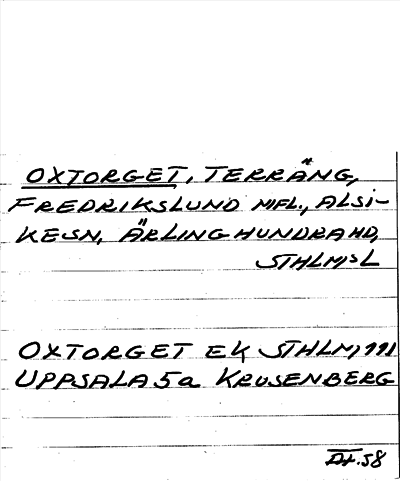 OXTORGET, TERRÄNG,
FREDRIKSLUND NIFL., ALSI-
KESN, ÄRLINGHUNDRA HD,
STHLMS L
OXTORGET EK STHLM, 111
UPPSALA 5a KRUSENBERG